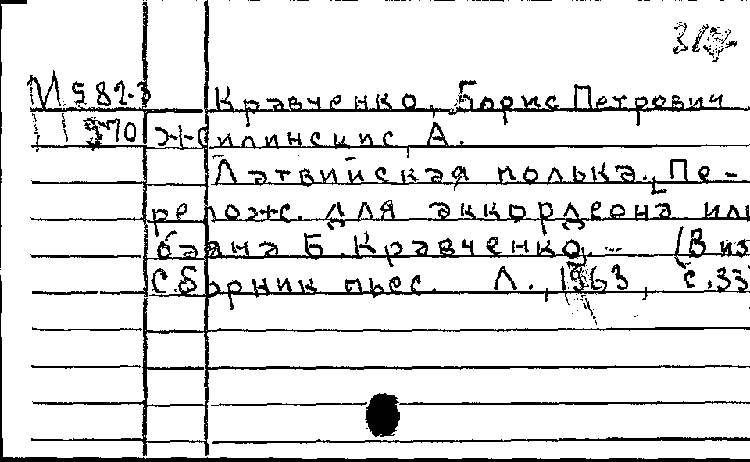 М 582-3 Кравченко, Борис Петрович
П 970 Жилинскис, А.
Латвийская полька. [Пе-
релож. для аккордеона или
баяна Б. Кравченко. – (В из
Сборник пьес. Л., 1963, с.33